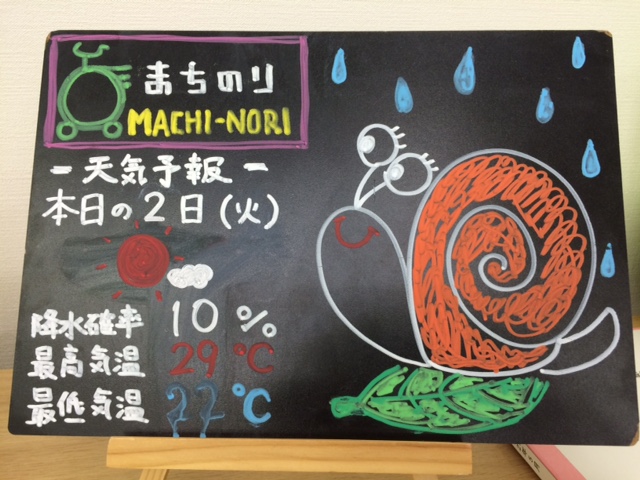 まちのり
MACHI-NORI
－天気予報－
本日の2日(火)
降水確率 10%
最高気温 29℃
最低気温 22℃